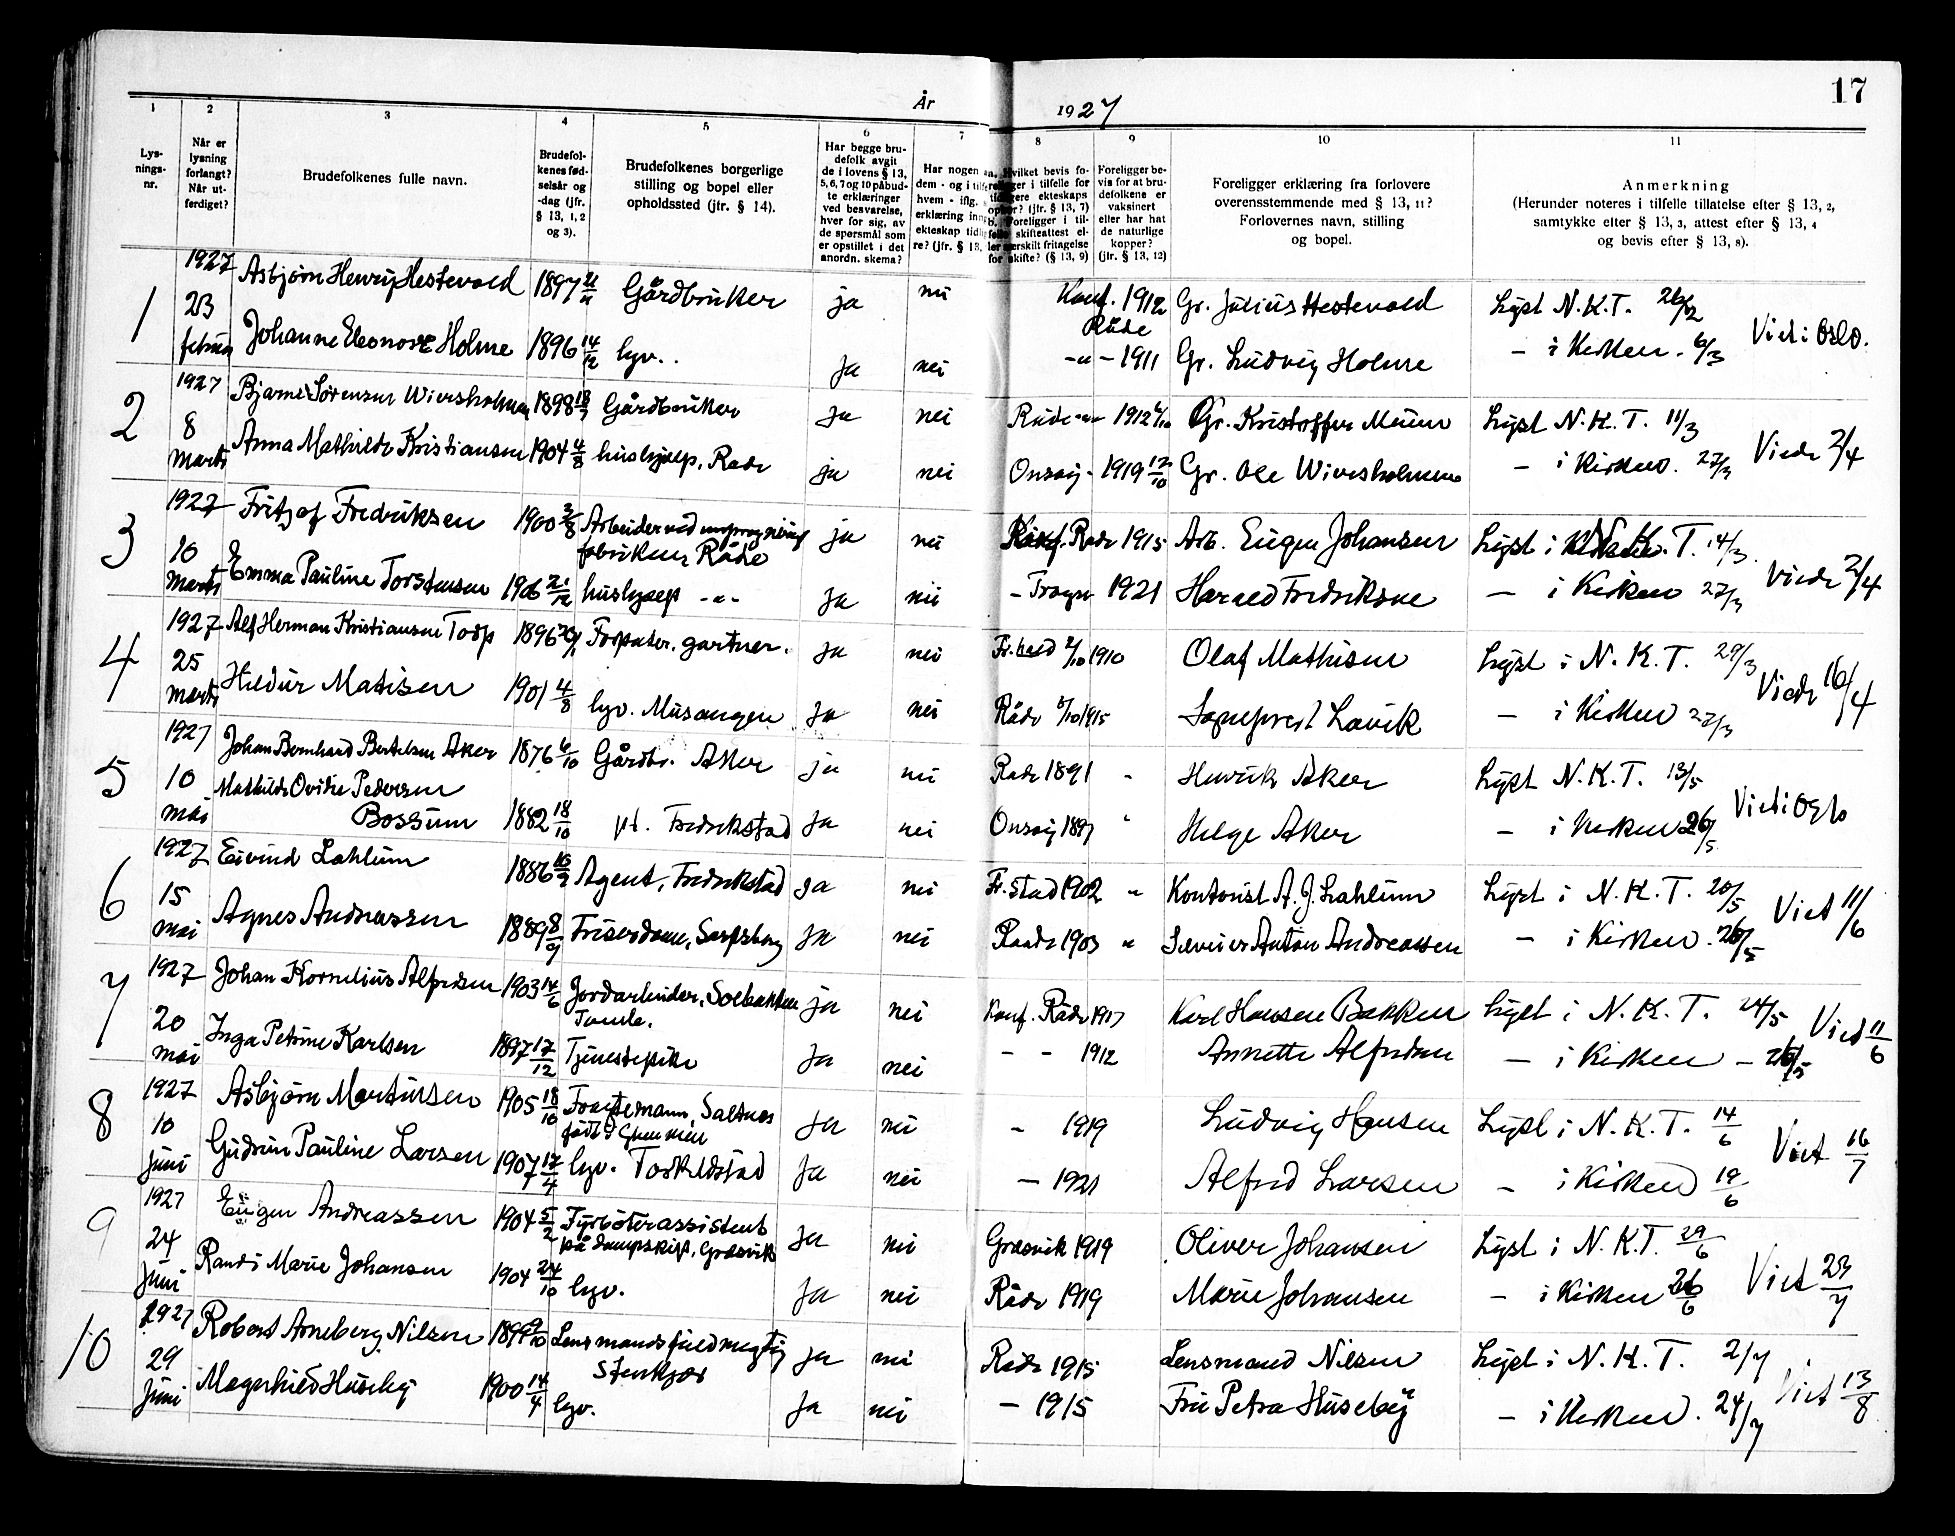 17
År 1927
1 2 3 4 5 6 7 8 9 10 11
Lys-
nings-
nr.
Når er
lysning
forlangt?
Når ut-
ferdiget?
Brudefolkenes fulle navn.
Brudefol-
kenes fød-
selsår og
-dag (jfr.
§ 13, 1, 2
og 3).
Brudefolkenes borgerlige
stilling og bopel eller
opholdssted (jfr. § 14).
Har begge bru-
defolk avgit
de i lovens § 13,
5, 6, 7 og 10 påbud-
te erklæringer
ved besvarelse,
hver for sig, av
de spørsmål som
er opstillet i det
anordn. skema?
Har nogen
dem - og i
hvem - iflg.
erklæring
ekteskap
re? (jfr. § 13,
Hvilket bevis fo-
religger i tilfelle for
tidligere ekteskaps
ophør? (jfr. § 13, 7)
Foreligger i til-
felle skifteattest el-
ler særskilt fritagelse
for skifte? (§ 13, 9)
Foreligger be-
vis for at bru-
defolkene er
vaksinert
eller har hat
de naturlige
kopper?
(jfr. § 13, 12)
Foreligger erklæring fra forlovere
overensstemmende med § 13, 11?
Forlovernes navn, stilling
og bopel.
Anmerkning
(Herunder noteres i tilfelle tillatelse efter § 13, 2,
samtykke efter § 13, 3, attest efter § 13, 4
og bevis efter § 13, 8).
1 1927 Asbjørn Henry Hestevold 1897 Gårdbruker ja nei Konf. 1912 Gr. Julius Hestevold Lyst N.K.T. 26/2
23 februar Johanne Eleonore Holme 1896 14/12 hgv. ja nei Råde -"- 1911 Gr. Ludvig Holme - i Kirken. 6/3 Viet i Oslo.
2 1927 Bjarne Sørensen Wiersholmen 1898 Gårdbruker ja nei Råde -"- 1912 Gr. Kristoffer Lyst N.K.T. 11/3
8 marts Anna Mathilde Kristiansen 1904 4/8 hushjælp, Rade ja nei Onsøy - 1919 Gr. Ole Wiersholmen - i Kirken. 27/3 Viede 2/4
3 1927 Fritjof Fredriksen 1900 3/8 Arbeider ved
fabrikken Råde ja nei Konf. Rade 1915 Arb. Eugen Johansen Lyst i N.K.T. 14/3
10 marts Emma Pauline Torstensen 1906 21/12 hushjælp -"- ja nei - 1921 Harald Fredriksen - i Kirken 27/3 Viede 2/4
4 1927 Alf Herman Kristiansen Torp 1896 gartner. ja nei Fr.stad 2/10 1910 Olaf Mathisen Lyst i N.K.T. 29/3
25 marts Hildur Matisen 1901 4/8 hgv. Missingen ja nei Råde 3/10 1915 Sogneprest Lavik - i Kirken 27/3 Viede 16/4
5 1927 Johan Bernhard Bertelsen Aker 1876 6/10 Gårdbr. Aker ja nei Rade 1891 " Henrik Aker Lyst N.K.T. 13/5
10 mai Mathilde Ovidie Pedersen
Bossum 1882 18/10 pt. Fredrikstad ja nei Onsøy 1897 " Helge Aker - i Kirken 26/5 Viet i Oslo
6 1927 Eivind Lahlum 1886 Agent, Fredrikstad ja nei Fr.stad 1902 " Kontorist A. J. Lahlum Lyst i N.K.T. 20/5
15 mai Agnes Andreassen 1889 8/9 Friserdame, Sarpsborg ja nei Raade 1903 " Anton Andreassen - i Kirken. 26/5 Viet 11/6
7 1927 Johan Kornelius Alfredsen 1903 14/6 Jordarbeider, Solbakken
Tomb. ja nei Konf. Råde 1917 Karl Hansen Bakken Lyst i N.K.T. 24/5
20 mai Inga Petrine Karlsen 1897 17/12 Tjenestepike ja nei - - 1912 Annette Alfredsen - i Kirken - 26/5 Viet 11/6
8 1927 Asbjørn Martinsen 1905 18/10 Saltnes
født i ja nei - 1919 Ludvig Hansen Lyst i N.K.T. 14/6
10 juni Gudrun Pauline Larsen 1907 17/4 hgv. Torkildstad ja nei - 1921 Alfred Larsen - i Kirken 19/6 Viet 16/7
9 1927 Eugen Andreassen 1904 5/2 Fyrbøterassistent
på dampskip, Græsvik ja nei Græsvik 1919 Oliver Johansen Lyst i N.K.T. 29/6
24 juni Randi Marie Johansen 1904 24/10 hgv. ja nei Råde 1919 Marie Johansen - i Kirken 26/6 Viet 23/7
10 1927 Robert Arneberg Nilsen 1899 9/10 Lensmandsfuldmegtig
Stenkjær ja nei Råde 1915 Lensmand Nilsen Lyst i N.K.T. 2/7
29 juni Magnhild Huseby 1900 14/4 hgv. ja nei - 1915 Fru Petra Huseby - i Kirken. 24/7 Viet 13/8